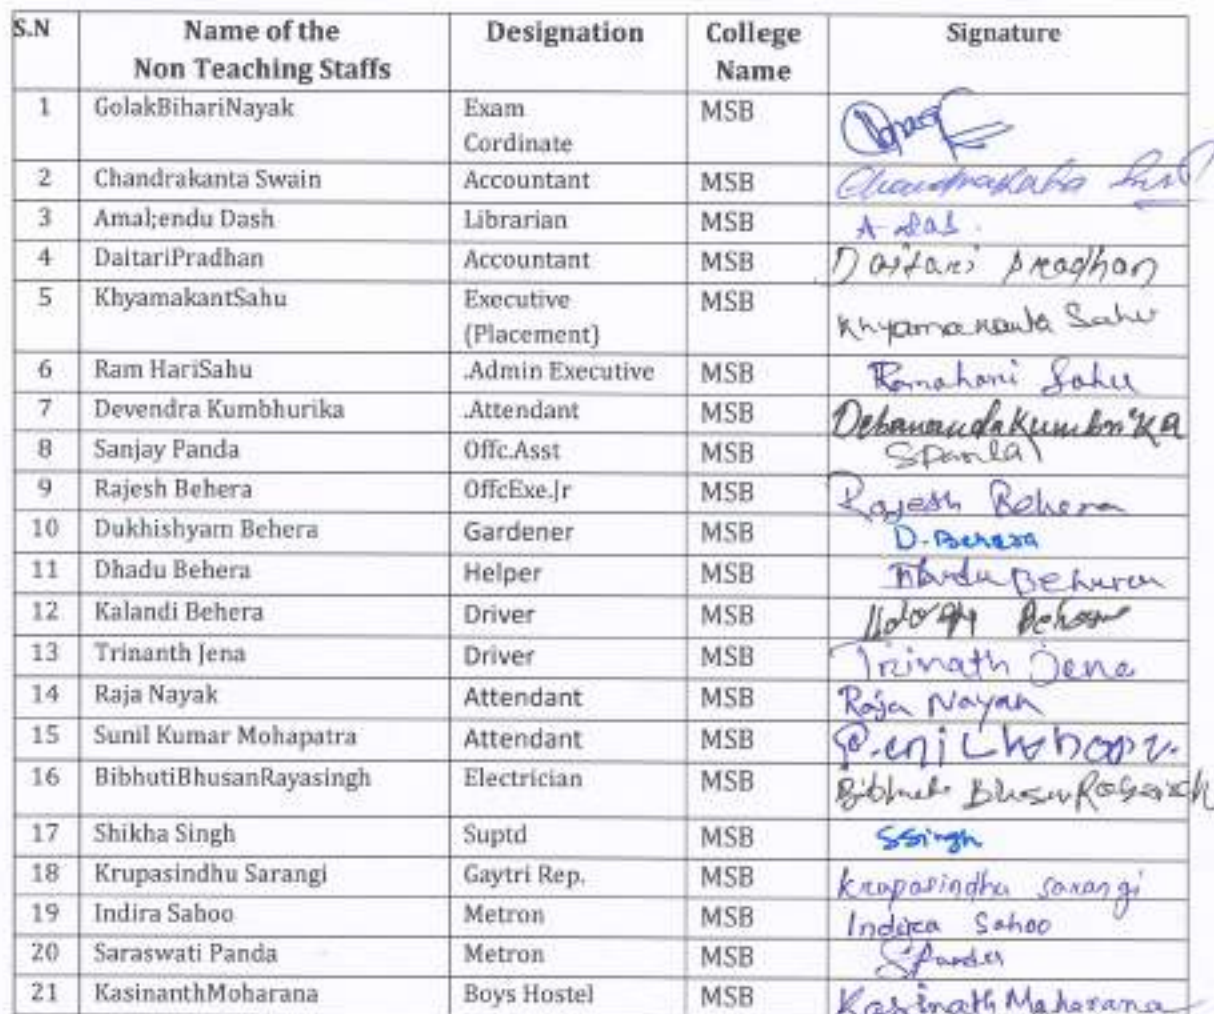 S.N Name of the Designation College Signature
Non Teaching Staffs Name
1 GolakBihariNayak Exam MSB
Cordinate
2 Chandrakanta Swain Accountant MSB
3 Amal;endu Dash Librarian MSB A
4 DaitariPradhan Accountant MSB Daitari Pradhan
5 KhyamakantSahu Executive MSB Khyamakanta Sahu
(Placement)
6 Ram HariSahu .Admin Executive MSB Ramahari Sahu
7 Devendra Kumbhurika .Attendant MSB
8 Sanjay Panda Offc.Asst MSB SPanda
9 Rajesh Behera OffcExe.Jr MSB Rajesh Behera
10 Dukhishyam Behera Gardener MSB D. Behera
11 Dhadu Behera Helper MSB
12 Kalandi Behera Driver MSB
13 Trinanth Jena Driver MSB Trinath Jena
14 Raja Nayak Attendant MSB Raja Nayak
15 Sunil Kumar Mohapatra Attendant MSB
16 BibhutiBhusanRayasingh Electrician MSB
17 Shikha Singh Suptd MSB SSingh
18 Krupasindhu Sarangi Gaytri Rep. MSB Krupasindhu Sarangi
19 Indira Sahoo Metron MSB Indira Sahoo
20 Saraswati Panda Metron MSB SPanda
21 KasinanthMoharana Boys Hostel MSB Kasinath Maharana